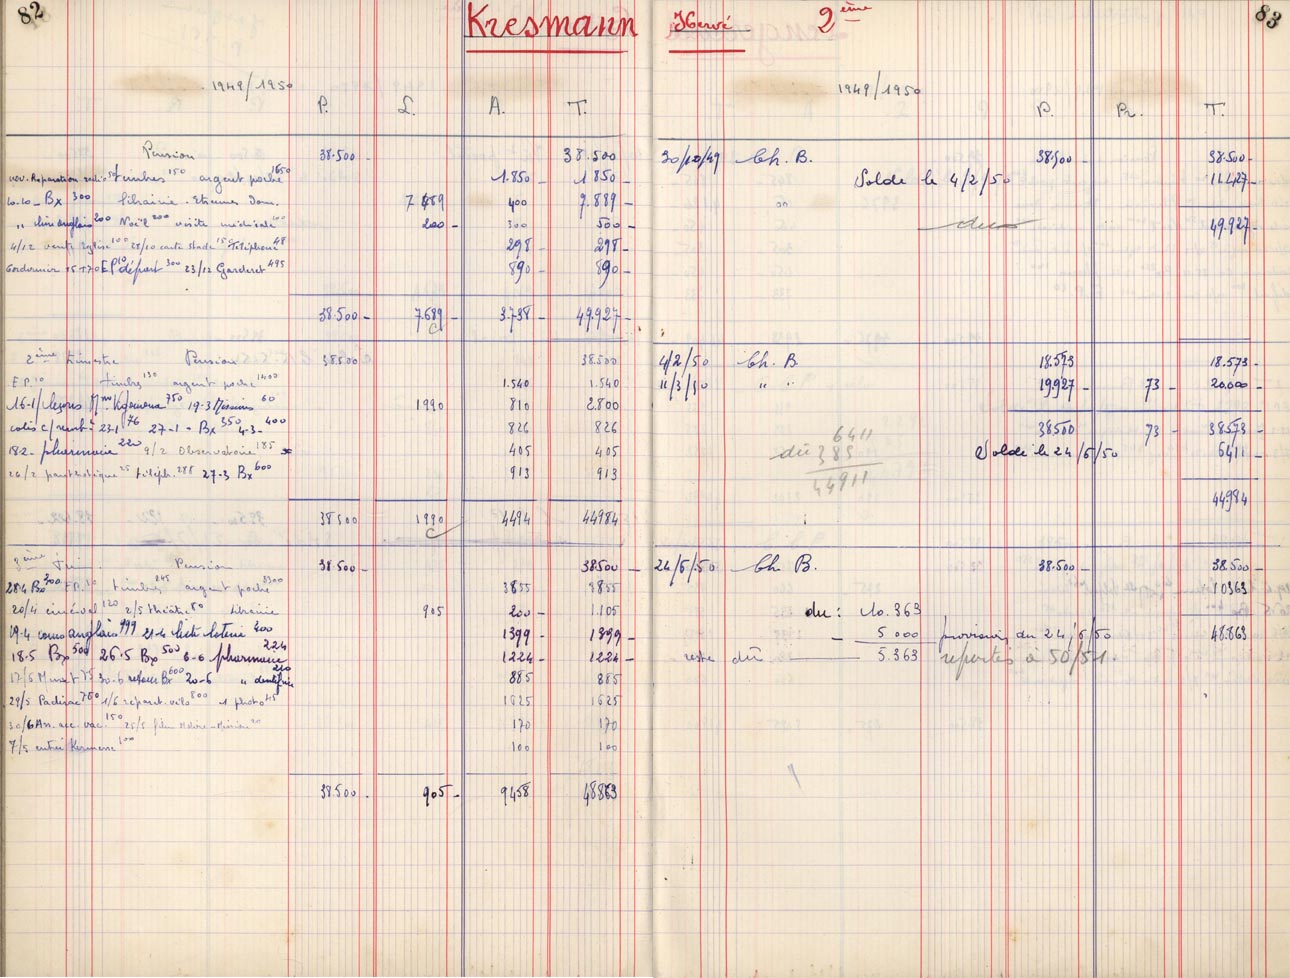 82
Kresmann Hervé 2ème
83
1949/1950
P. L. A. T.
Pension 38.500 - 38.500
timbres 150 argent poche 1650 1.850 - 1.850 -
10.10 - Bx 300 librairie - Etrennes Dom. 400 7.889 -
" anglais 200 Noël 200 visite médicale 200 - 300 500 -
4/12 vente Eglise 100 28/10 carte stade 15 téléphone 48 298 - 298 -
EP 10 départ 300 23/12 Garderet 495 890 - 890 -
38.500 - 7.689 - 3.738 - 49.927 -
2ème trimestre Pension 38.500 38.500
E.P. 10 timbres 130 argent poche 1400 1.540 1.540
16-1/ leçons Mme 750 19-3 Missions 60 1990 810 2.800
colis 23-1 76 27-1 - Bx 350 4-3- 400 826 826
18.2 - pharmacie 220 9/2 Observatoire 185 405 405
26/2 25 téléph. 288 27-3 Bx 600 913 913
38.500 1990 4494 44984
3ème Tri. Pension 38.500 - 38.500 -
28.4 Bx 300 E.P. 10 timbres 245 argent poche 3300 3855 3855
20/4 cinéval 120 2/5 théât. 80 librairie 905 200 - 1.105
19-4 cours anglais 999 21-4 liste loterie 400 1399 - 1399 -
18.5 Bx 500 26.5 Bx 500 6-6 pharmacie 224 1224 - 1224 -
17/6 75 30-6 retour Bx 600 20-6 " dentifrice 210 885 885
29/5 Padirac 780 1/6 réparat. vélo 800 1 photo 45 1625 1625
30/6 Ass. acc. vac. 150 25/5 film Notre-Mission 20 170 170
7/5 entrée Kermesse 100 100 100
38.500 - 905 - 9458 48863
1949/1950
P. Pr. T.
30/10/49 Ch. B. 38.500 38.500 -
Solde le 4/2/50 11.427 -
dus 49.927 -
4/2/50 Ch. B. 18.573 18.573 -
11/3/50 " " 19.927 - 73 - 20.000 -
38.500 73 - 38.573 -
6411
dû 385
44911
Solde le 24/5/50 6411 -
44.984
24/5/50 Ch B. 38.500 - 38.500 -
10363
du : 10.363
- 5.000 provision du 24/6/50 48.863
reste dû 5.363 reportés à 50/51.